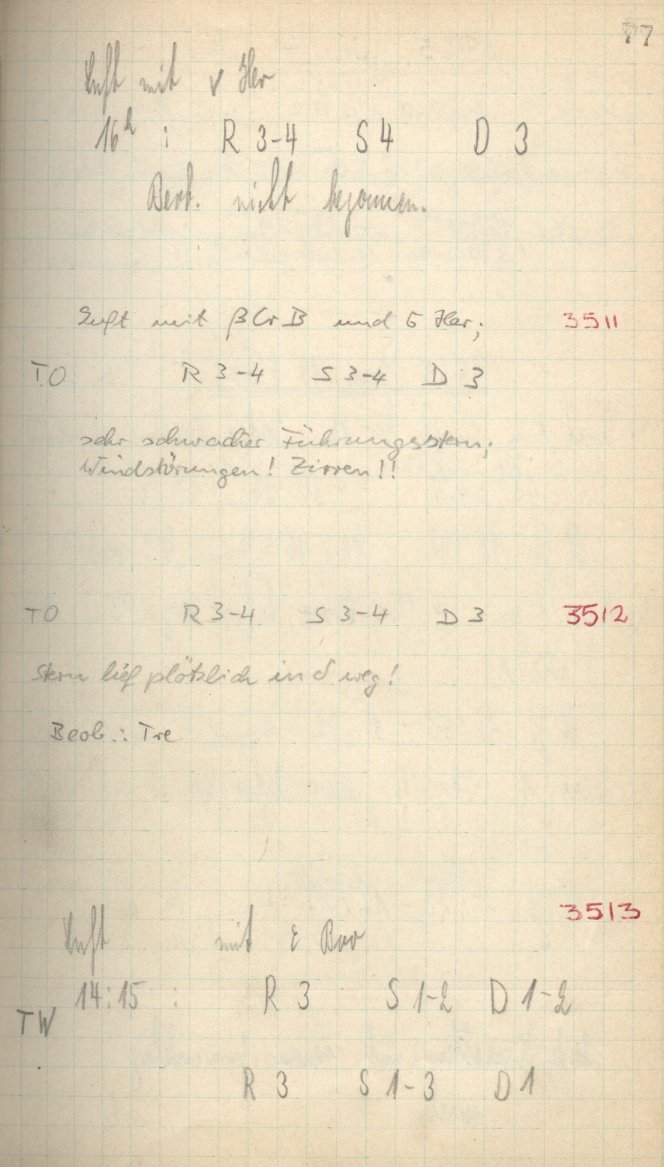 77
Luft mit ν Her
16h : R 3-4 S 4 D 3
Beob. nicht begonnen.
Luft mit β CrB und σ Her; 3511
TO R 3-4 S 3-4 D 3
sehr schwacher Führungsstern;
Windstörungen! Zirren!!
TO R 3-4 S 3-4 D 3 3512
Stern lief plötzlich in δ weg!
Beob.: Tre
3513
Luft mit ε Boo
14:15 : R 3 S 1-2 D 1-2
TW
R 3 S 1-3 D 1